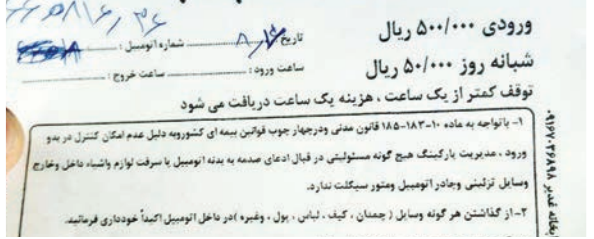 ورودی ۵۰۰/۰۰۰ ریال
شبانه روز ۵۰/۰۰۰ ریال
تاریخ ............ شماره اتومبیل : ............
ساعت ورود : ............ ساعت خروج : ............
توقف کمتر از یک ساعت ، هزینه یک ساعت دریافت می شود
۱- باتواجه به ماده ۱۰-۱۸۳-۱۸۵ قانون مدنی ودرجهار جوب قوانین بیمه ای کشوروبه دلیل عدم امکان کنترل در بدو
ورود ، مدیریت پارکینگ هیچ گونه مسئولیتی در قبال ادعای صدمه به بدنه اتومبیل یا سرقت لوازم واشیاء داخل وخارج
وسایل تزئینی وچادر اتومبیل وموتور سیکلت ندارد.
۲- از گذاشتن هر گونه وسایل ( چمدان ، کیف ، لباس ، پول ، وغیره )در داخل اتومبیل اکیداً خودداری فرمائید.